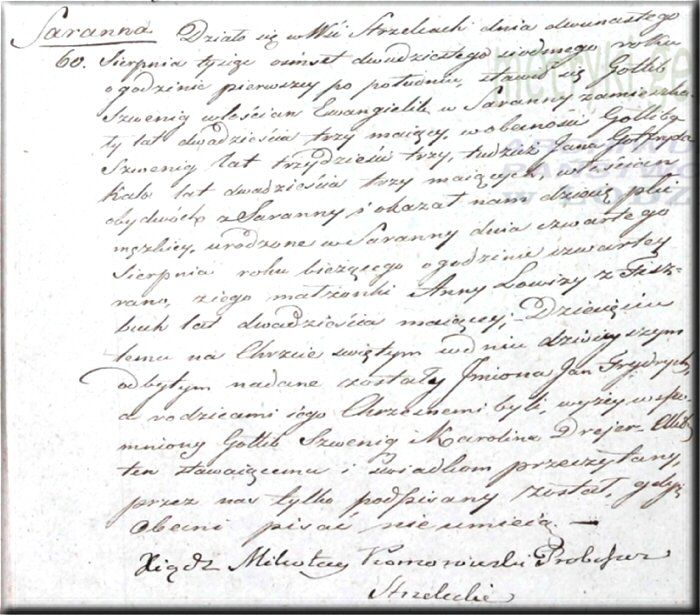 Saranna. Działo się w Wsi Strzelcach dnia dwunastego
60. Sierpnia tysiąc ośmset dwudziestego siodmego roku
o godzinie pierwszey po południu, stawił się Gotlib
Szwenig włościan Ewangielik w Saranny zamieszka-
ły lat dwadzieścia trzy maiący, w obecności Gotliba
Szwenig lat trzydzieści trzy, tudzież Jana Gottfryda
Kalo lat dwadzieścia trzy maiących włościan
obydwóch z Saranny i okazał nam dziecię płci
męzkiey, urodzone w Saranny dnia czwartego
Sierpnia roku bieżącego o godzinie czwartey
rano, z iego małżonki Anny Lowizy z Fisz-
buch lat dwadzieścia maiącey; Dziecięciu
temu na Chrzcie świętym w dniu dzisieyszym
odbytym nadane zostały Jmiona Jan Frydrych,
a rodzicami iego Chrzesnemi byli, wyżey wspo-
mniony Gotlib Szwenig i Karolina Drejer. Akt
ten stawaiącemu i świadkom przeczytany,
przez nas tylko podpisany został, gdyż
Obecni pisać nie umieią. —
Xiądz Mikołay Komorowski Proboszcz
Strzelecki